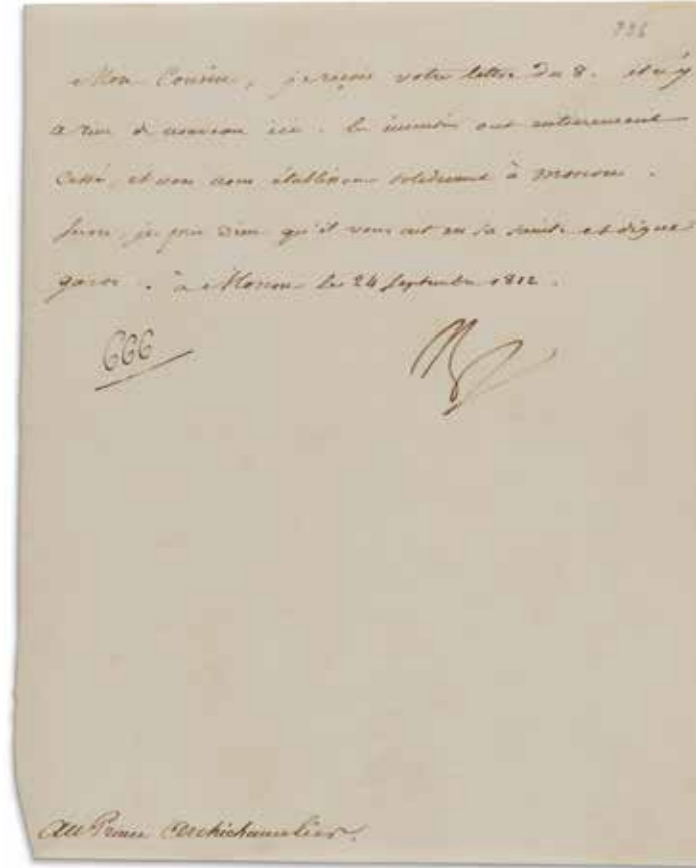 736
Mon Cousin, je reçois votre lettre du 8. il n'y
a rien de nouveau ici. les incendies ont entierement
cessé, et nous nous établissons solidement à Moscou.
Sur ce, je prie Dieu qu'il vous ait en sa sainte et digne
garde. à Moscou le 24 Septembre 1812.
666
Au Prince Archichancelier.